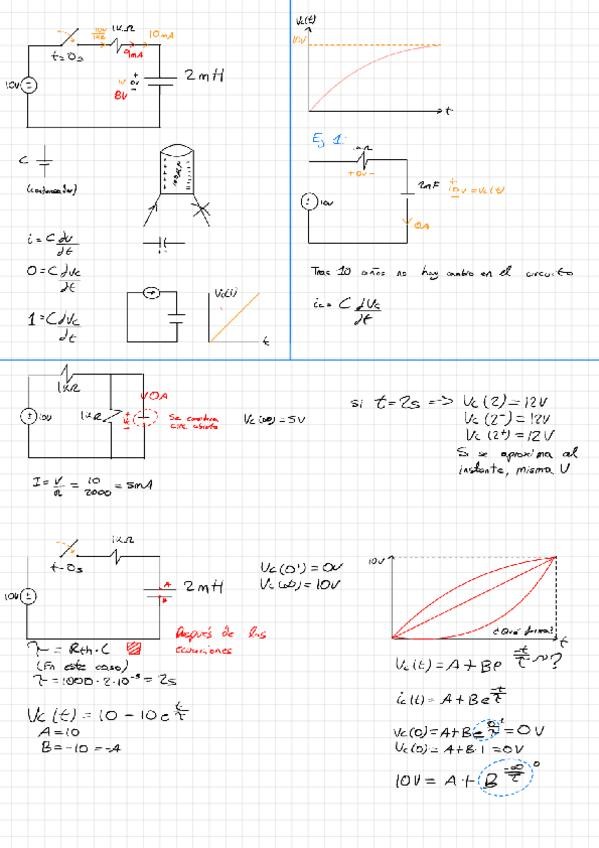 10V/1kΩ 1kΩ 10mA
9mA
t=0s
10V
0V
8V
2mH
C
(condensador)
i = C dv/dt
0 = C dVc/dt
1 = C dVc/dt
Vc(t)
t
Vc(t)
10V
t
Ej 1:
+0V-
10V
2mF
10V = Vc(t)
0A
Tras 10 años no hay cambio en el circuito
ic = C dVc/dt
1kΩ
10V
1kΩ
0A
Se considera
circ. abierto
Vc(∞) = 5V
I = V/R = 10/2000 = 5mA
si t=2s => Vc(2) = 12V
Vc(2⁻) = 12V
Vc(2⁺) = 12V
Si se aproxima al
instante, misma V
1kΩ
t=0s
10V
A
B
2mH
Vc(0⁺) = 0V
Vc(∞) = 10V
Después de las
ecuaciones
τ = Rth·C
(En este caso)
τ = 1000·2·10⁻³ = 2s
Vc(t) = 10 - 10 e^t/τ
A = 10
B = -10 = -A
10V
¿Qué forma?
t
Vc(t) = A + Be^-t/τ ~> ?
ic(t) = A + Be^-t/τ
Vc(0) = A + Be^0/τ = 0V
Vc(0) = A + B·1 = 0V
10V = A + B^-∞/τ 0